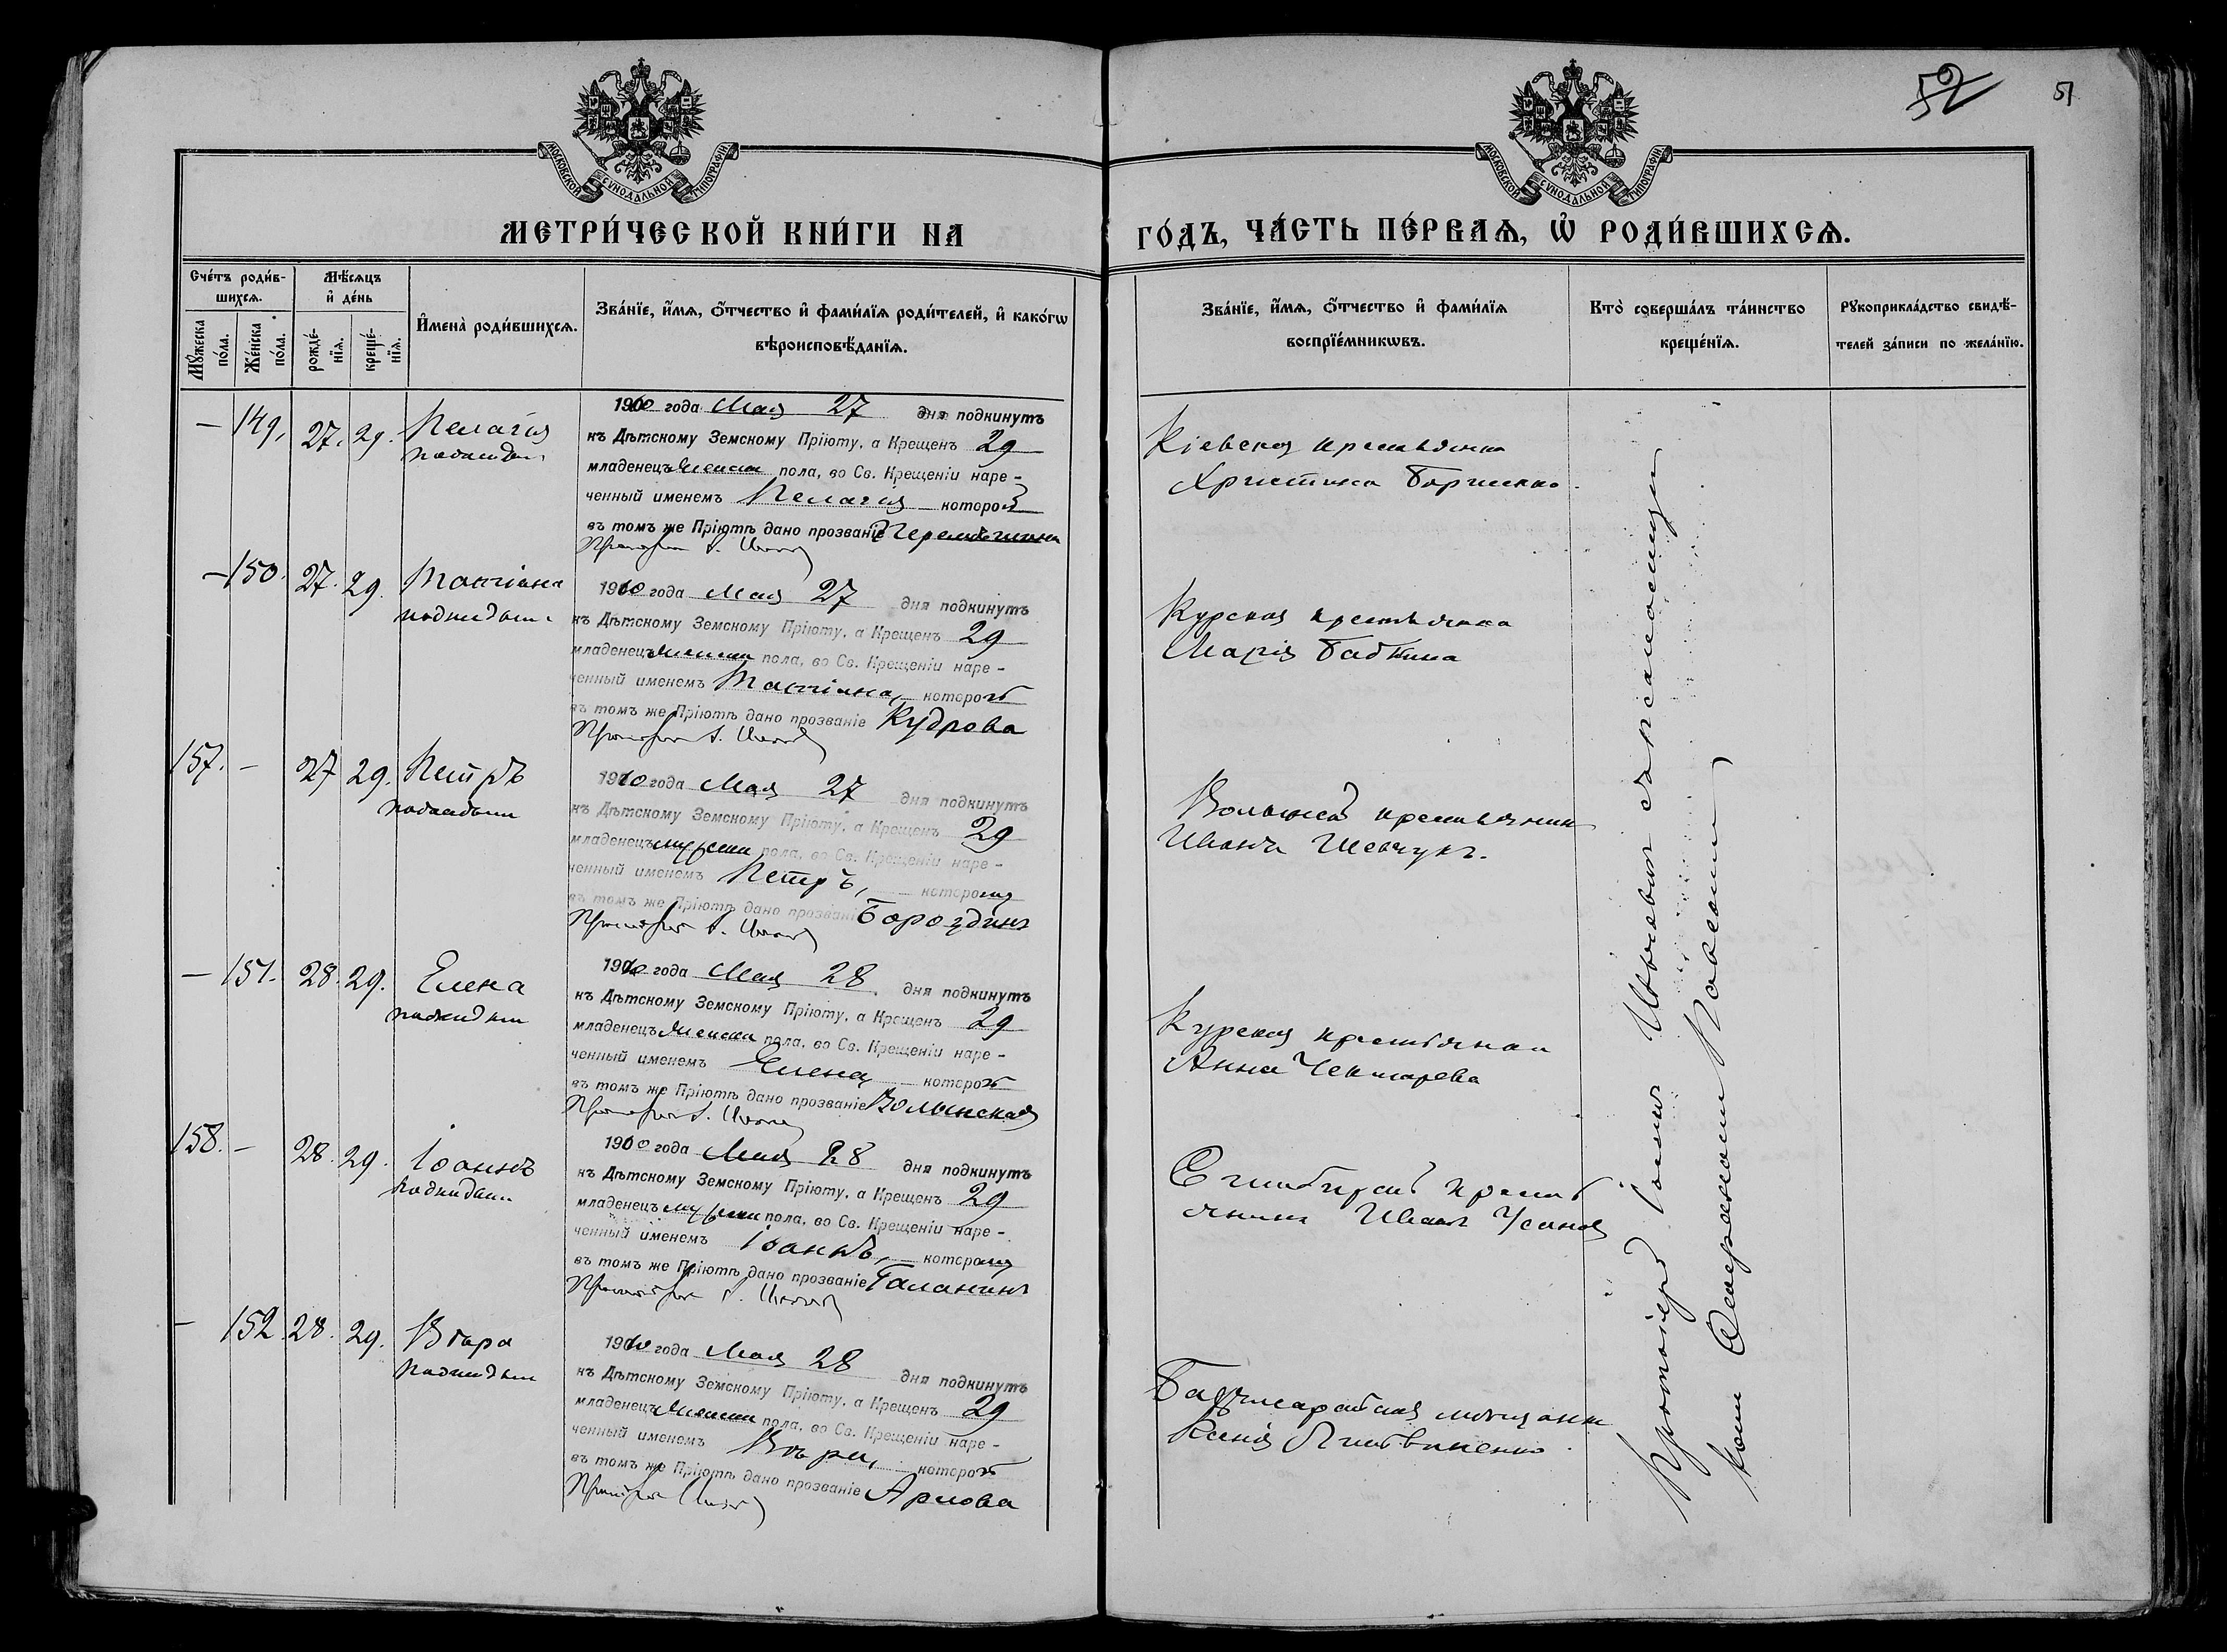 52
51
МОСКОВСКОЙ СѴНОДАЛЬНОЙ ТИПОГРАФІИ
МОСКОВСКОЙ СѴНОДАЛЬНОЙ ТИПОГРАФІИ
МЕТРИ́ЧЕСКОЙ КНИ́ГИ НА
ГО́ДЪ, ЧА́СТЬ ПЕ́РВАѦ, Ѡ҆ РОДИ́ВШИХСѦ.
Сче́тъ роди́в-
шихсѧ.
Мꙋ́жеска по́ла.
Же́нска по́ла.
Мѣ́сѧцъ
и҆ де́нь
рожде́-
нїѧ.
креще́-
нїѧ.
И҆мена̀ роди́вшихсѧ.
Зва́нїе, и҆́мѧ, ѻ҆́тчество и҆ фами́лїѧ роди́телей, и҆ како́гѡ
вѣроисповѣ́данїѧ.
Зва́нїе, и҆́мѧ, ѻ҆́тчество и҆ фами́лїѧ
воспрїе́мникѡвъ.
Кто̀ соверша́лъ та́инство
креще́нїѧ.
Рꙋкоприкла́дство свидѣ́-
телей за́писи по жела́нїю.
— 149. 27. 29. Пелагія
подкидыш
1910 года Мая 27 дня подкинутъ
къ Дѣтскому Земскому Пріюту, а Крещенъ 29
младенецъ женска пола, во Св. Крещеніи наре-
ченный именемъ Пелагія которой
въ томъ же Пріютѣ дано прозваніе
Кіевская крестьянка
Христина
— 150. 27. 29. Татіана
подкидыш
1910 года Мая 27 дня подкинутъ
къ Дѣтскому Земскому Пріюту, а Крещенъ 29
младенецъ женска пола, во Св. Крещеніи наре-
ченный именемъ Татіана, которой
въ томъ же Пріютѣ дано прозваніе Кудрова
Курская крестьянка
Марія Бабкина
157. — 27 29. Петръ
подкидыш
1910 года Мая 27 дня подкинутъ
къ Дѣтскому Земскому Пріюту, а Крещенъ 29
младенецъ мужска пола, во Св. Крещеніи наре-
ченный именемъ Петръ, которому
въ томъ же Пріютѣ дано прозваніе Бороздинъ
Волынскій крестьянинъ
Иванъ Шевчукъ.
— 151. 28. 29. Елена
подкидыш
1910 года Мая 28 дня подкинутъ
къ Дѣтскому Земскому Пріюту, а Крещенъ 29
младенецъ женска пола, во Св. Крещеніи наре-
ченный именемъ Елена которой
въ томъ же Пріютѣ дано прозваніе Волынская
Курская крестьянка
Анна Чекмарева
158. — 28. 29. Іоаннъ
подкидыш
1910 года Мая 28 дня подкинутъ
къ Дѣтскому Земскому Пріюту, а Крещенъ 29
младенецъ мужска пола, во Св. Крещеніи наре-
ченный именемъ Іоаннъ, которому
въ томъ же Пріютѣ дано прозваніе Галанинъ
Симбирскій крест
янинъ Иванъ
— 152. 28. 29. Вѣра
подкидыш
1910 года Мая 28 дня подкинутъ
къ Дѣтскому Земскому Пріюту, а Крещенъ 29
младенецъ женска пола, во Св. Крещеніи наре-
ченный именемъ Вѣра, которой
въ томъ же Пріютѣ дано прозваніе
Бахчисарайская мѣщанка
Ксенія Литвиненко.
Протоіерей Іоаннъ